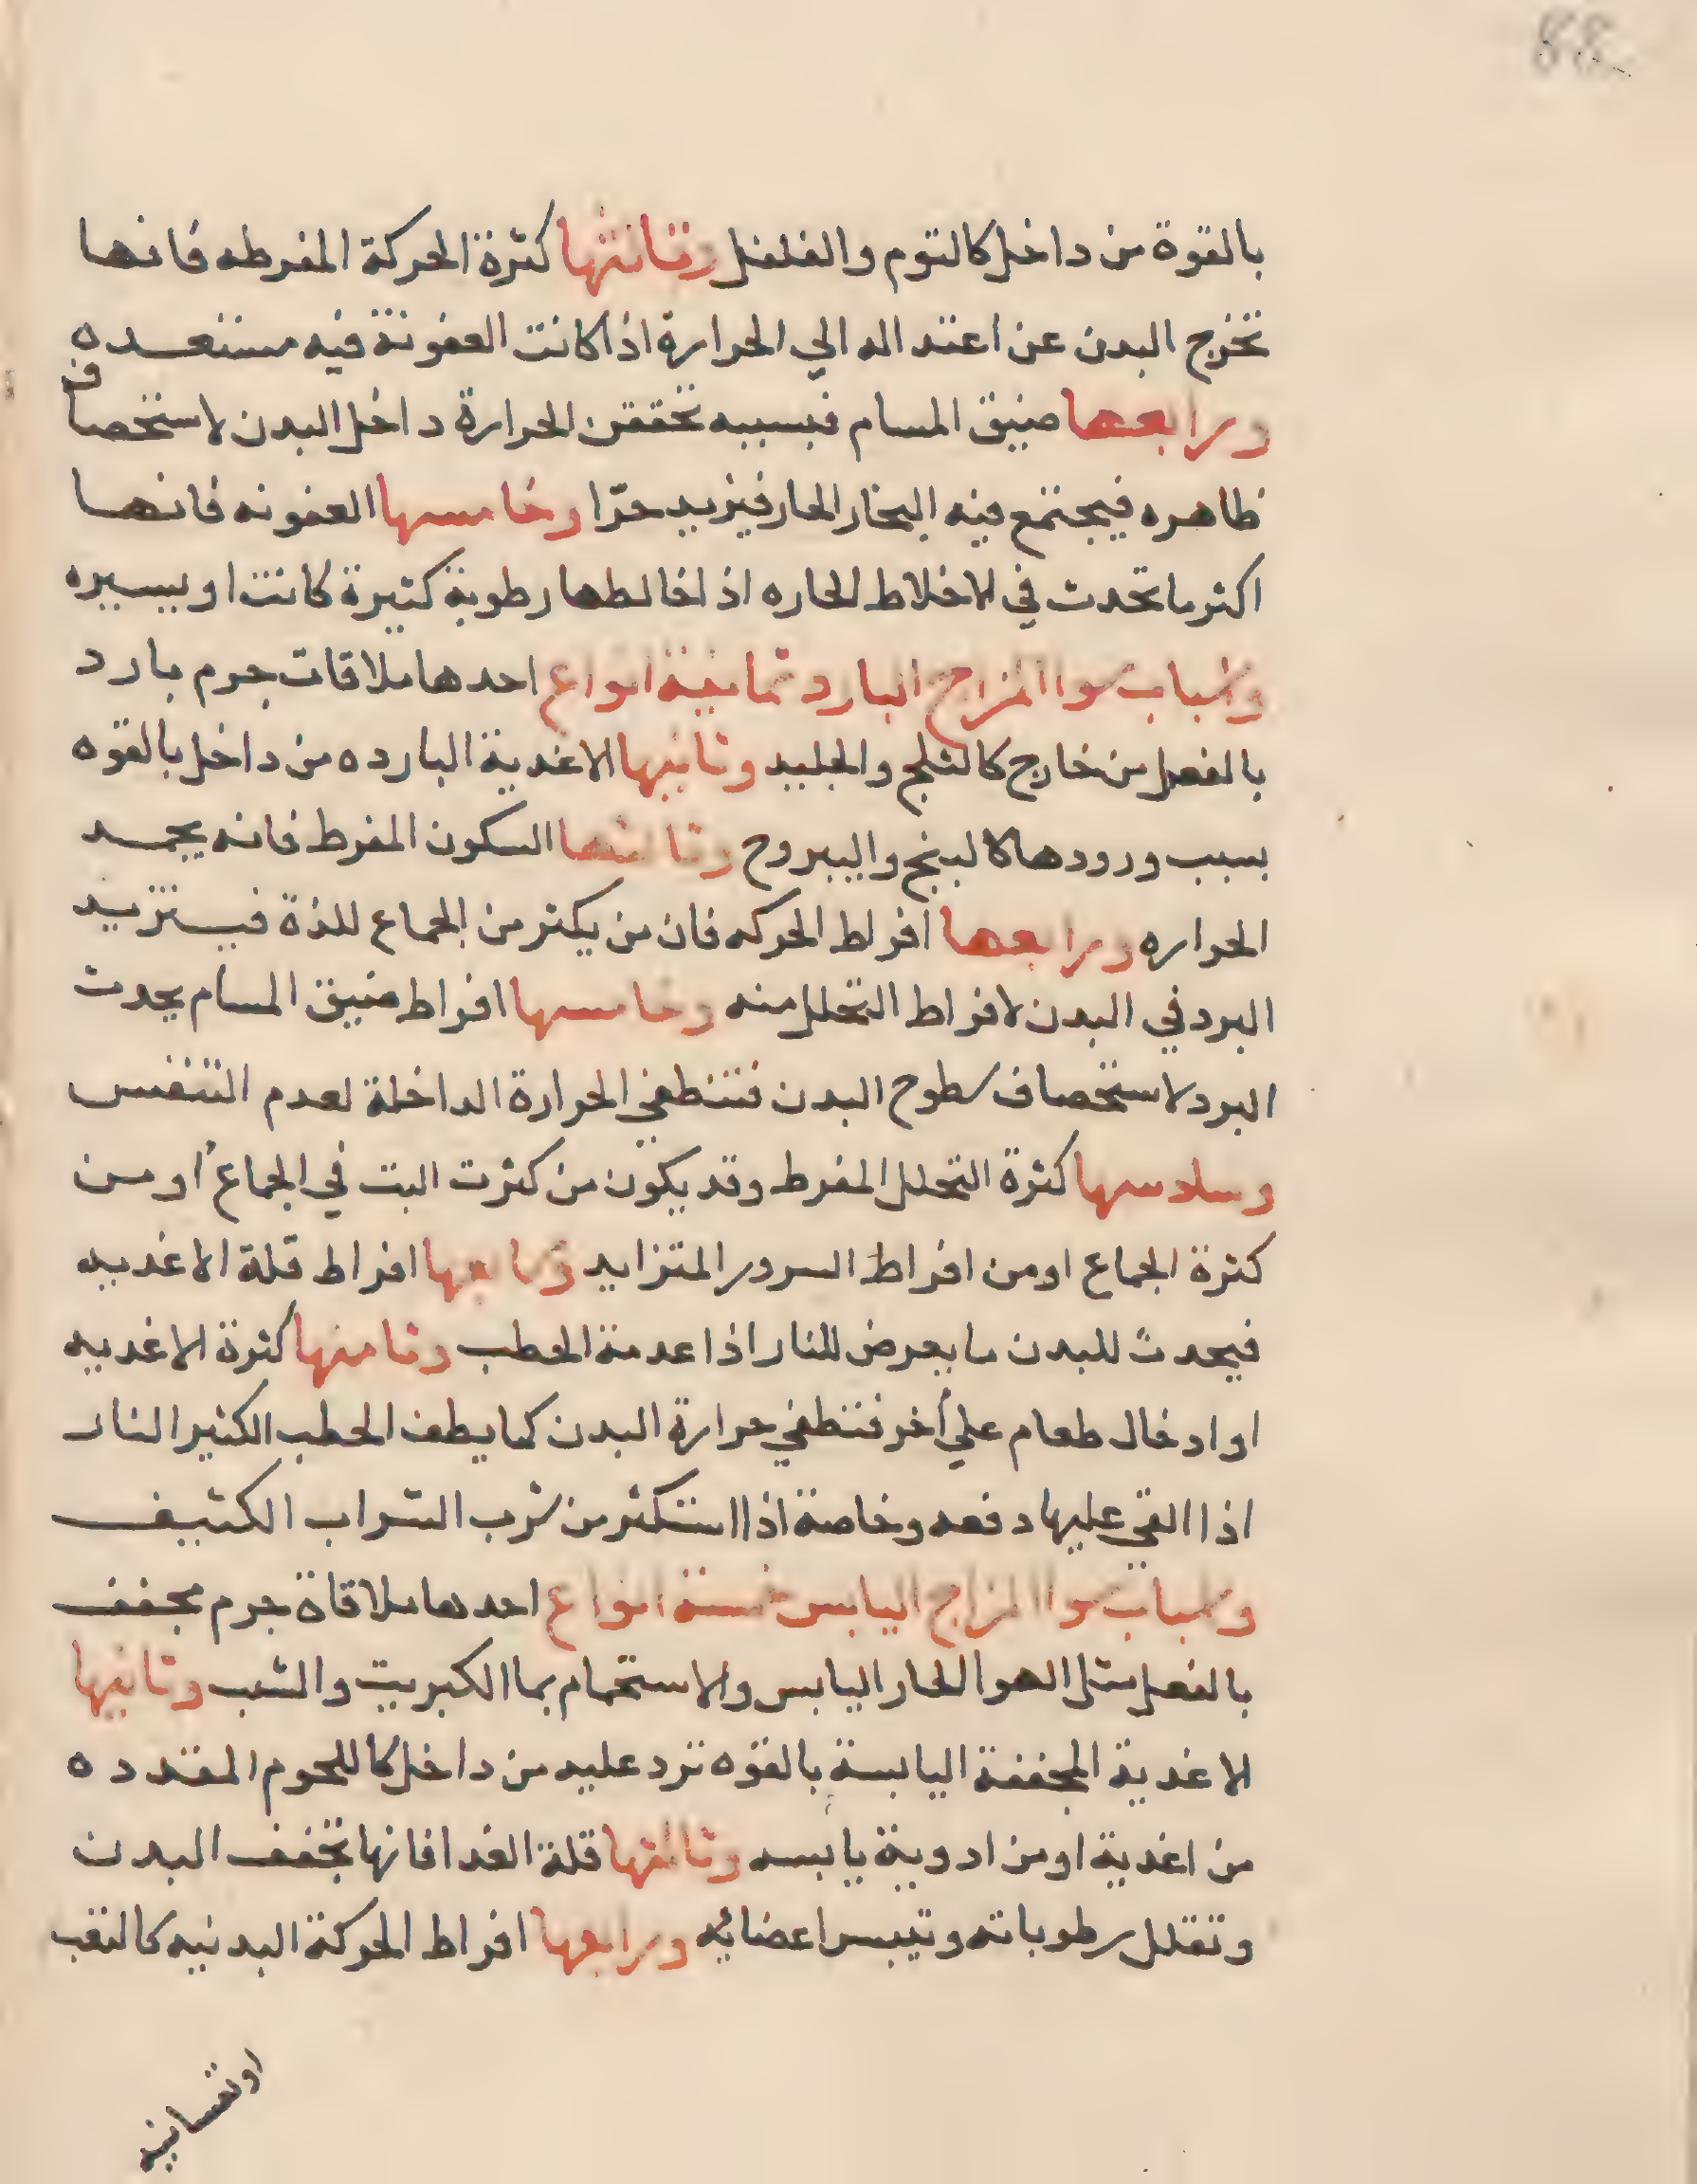 88
بالقوة من داخل كالثوم والفلفل وثالثها كثرة الحركة المفرطه فانها
تخرج البدن عن اعتداله الي الحرارة اذا كانت العفونة فيه مستعده
ورابعها ضيق المسام فبسببه تحتقن الحرارة داخل البدن لاستخصاف
ظاهره فيجتمع فيه البخار الحار فيزيد حرّا وخامسها العفونه فانها
اكثر ما تحدث في الاخلاط الحاره اذ اخالطها رطوبة كثيرة كانت او يسيره
واسباب سوا المزاج البارد ثمانية انواع احدها ملاقات جرم بارد
بالفعل من خارج كالثلج والجليد وثانيها الاغدية البارده من داخل بالقوه
بسبب ورودها كالبنج واليبروح وثالثها السكون المفرط فانه يجمد
الحواره ورابعها افراط الحركه فان من يكثر من الجماع للذة فيستزيد
البرد في البدن لافراط التحلل منه وخامسها افراط ضيق المسام يحدث
البرد لاستخصاف سطوح البدن فتنطفي الحرارة الداخلة لعدم التنفس
وسادسها كثرة التحلل المفرط وقد يكون من كثرت البت في الجماع أو من
كثرة الجماع او من افراط السرور المتزايد وسابعها افراط قلة الاغديه
فيحدث للبدن ما يعرض للنار اذا عدمة الحطب وثامنها كثرة الاغديه
او ادخال طعام علي أخر فتنطفي حرارة البدن كما يطف الحطب الكثير النار
اذا القي عليها دفعه وخاصة اذا استكثر من شرب الشراب الكثيف
واسباب سوا المزاج اليابس خمسة انواع احدها ملاقاة جرم مجفف
بالفعل مثل الهوا الحار اليابس والاستحمام بما الكبريت والشب وثانيها
الاغدية المجففة اليابسة بالقوه ترد عليه من داخل كاللحوم المقدده
من اغدية او من ادوية يابسه وثالثها قلة الغدا فانها تجفف البدن
وتقلل رطوباته وتيبس اعضايه ورابعها افراط الحركة البدنيه كالتعب
او نفسانيه